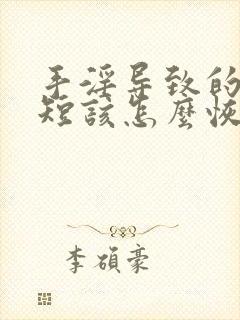 手淫导致的
短該怎麼恢
李碩豪